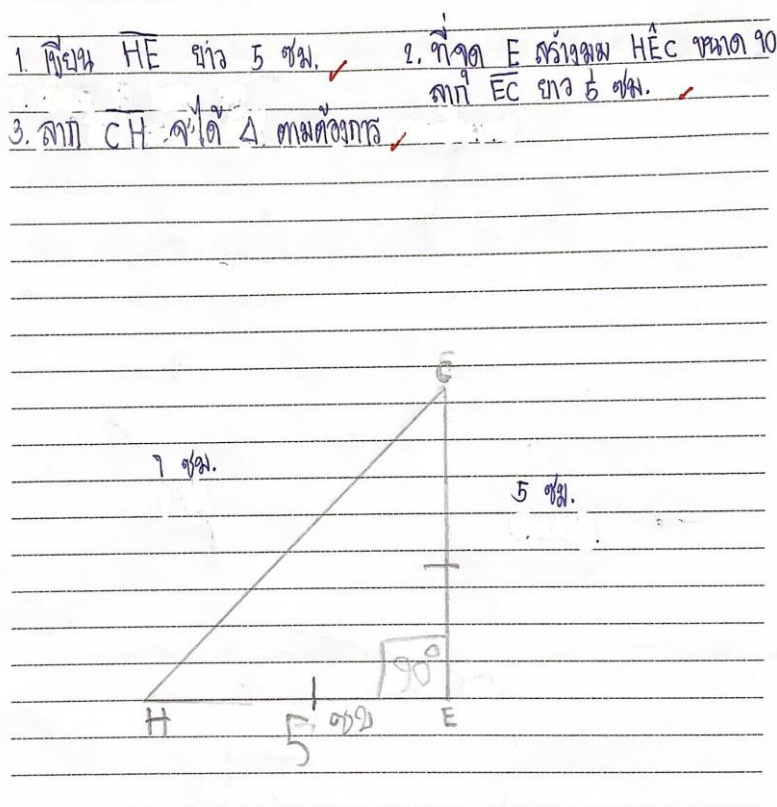 1. เขียน HE ยาว 5 ซม. 2. ที่จุด E สร้างมุม HÊC ขนาด 90
ลาก EC ยาว 5 ซม.
3. ลาก CH จะได้ Δ ตามต้องการ
C
7 ซม.
5 ซม.
90°
H 5 ซม E